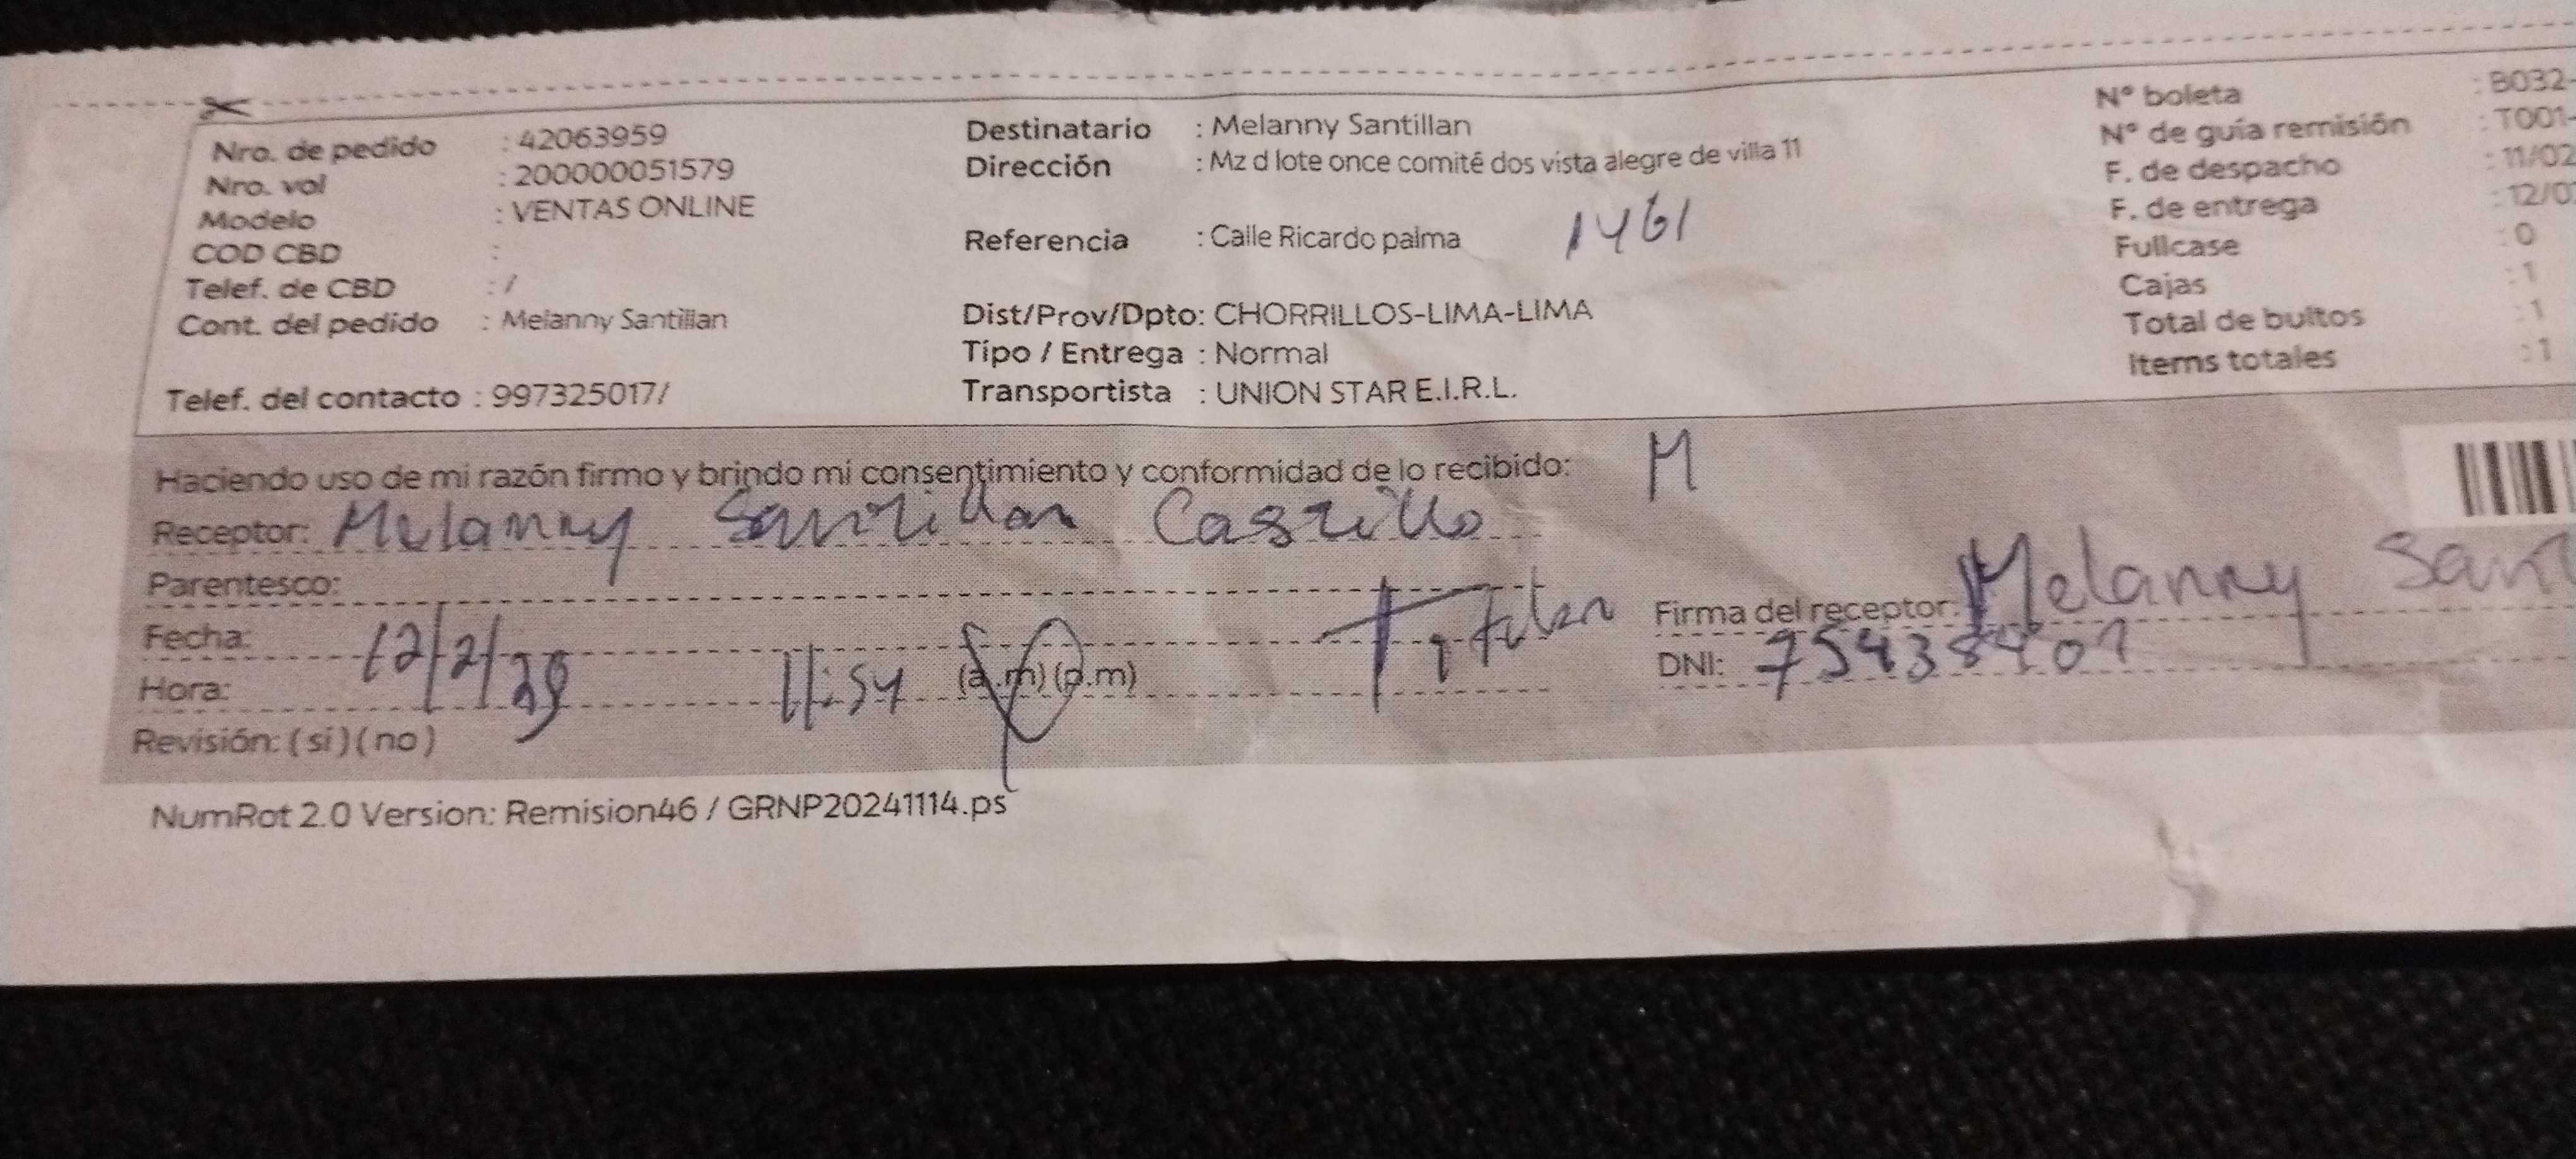 Nro. de pedido : 42063959
Nro. vol : 200000051579
Modelo : VENTAS ONLINE
COD CBD :
Telef. de CBD : /
Cont. del pedido : Melanny Santillan
Telef. del contacto : 997325017/
Destinatario : Melanny Santillan
Dirección : Mz d lote once comité dos vista alegre de villa 11
Referencia : Calle Ricardo palma 1461
Dist/Prov/Dpto: CHORRILLOS-LIMA-LIMA
Tipo / Entrega : Normal
Transportista : UNION STAR E.I.R.L.
N° boleta : B032-
N° de guía remisión : T001-
F. de despacho : 11/02
F. de entrega : 12/0
Fullcase : 0
Cajas : 1
Total de bultos : 1
Items totales : 1
Haciendo uso de mi razón firmo y brindo mi consentimiento y conformidad de lo recibido: M
Receptor: Melanny Santillan Castillo
Parentesco:
Fecha: 12/2/
Hora: 11:54 (a.m) (p.m)
Revisión: (si) (no)
Titular
Firma del receptor: Melanny Sant
DNI:
NumRot 2.0 Version: Remision46 / GRNP20241114.ps